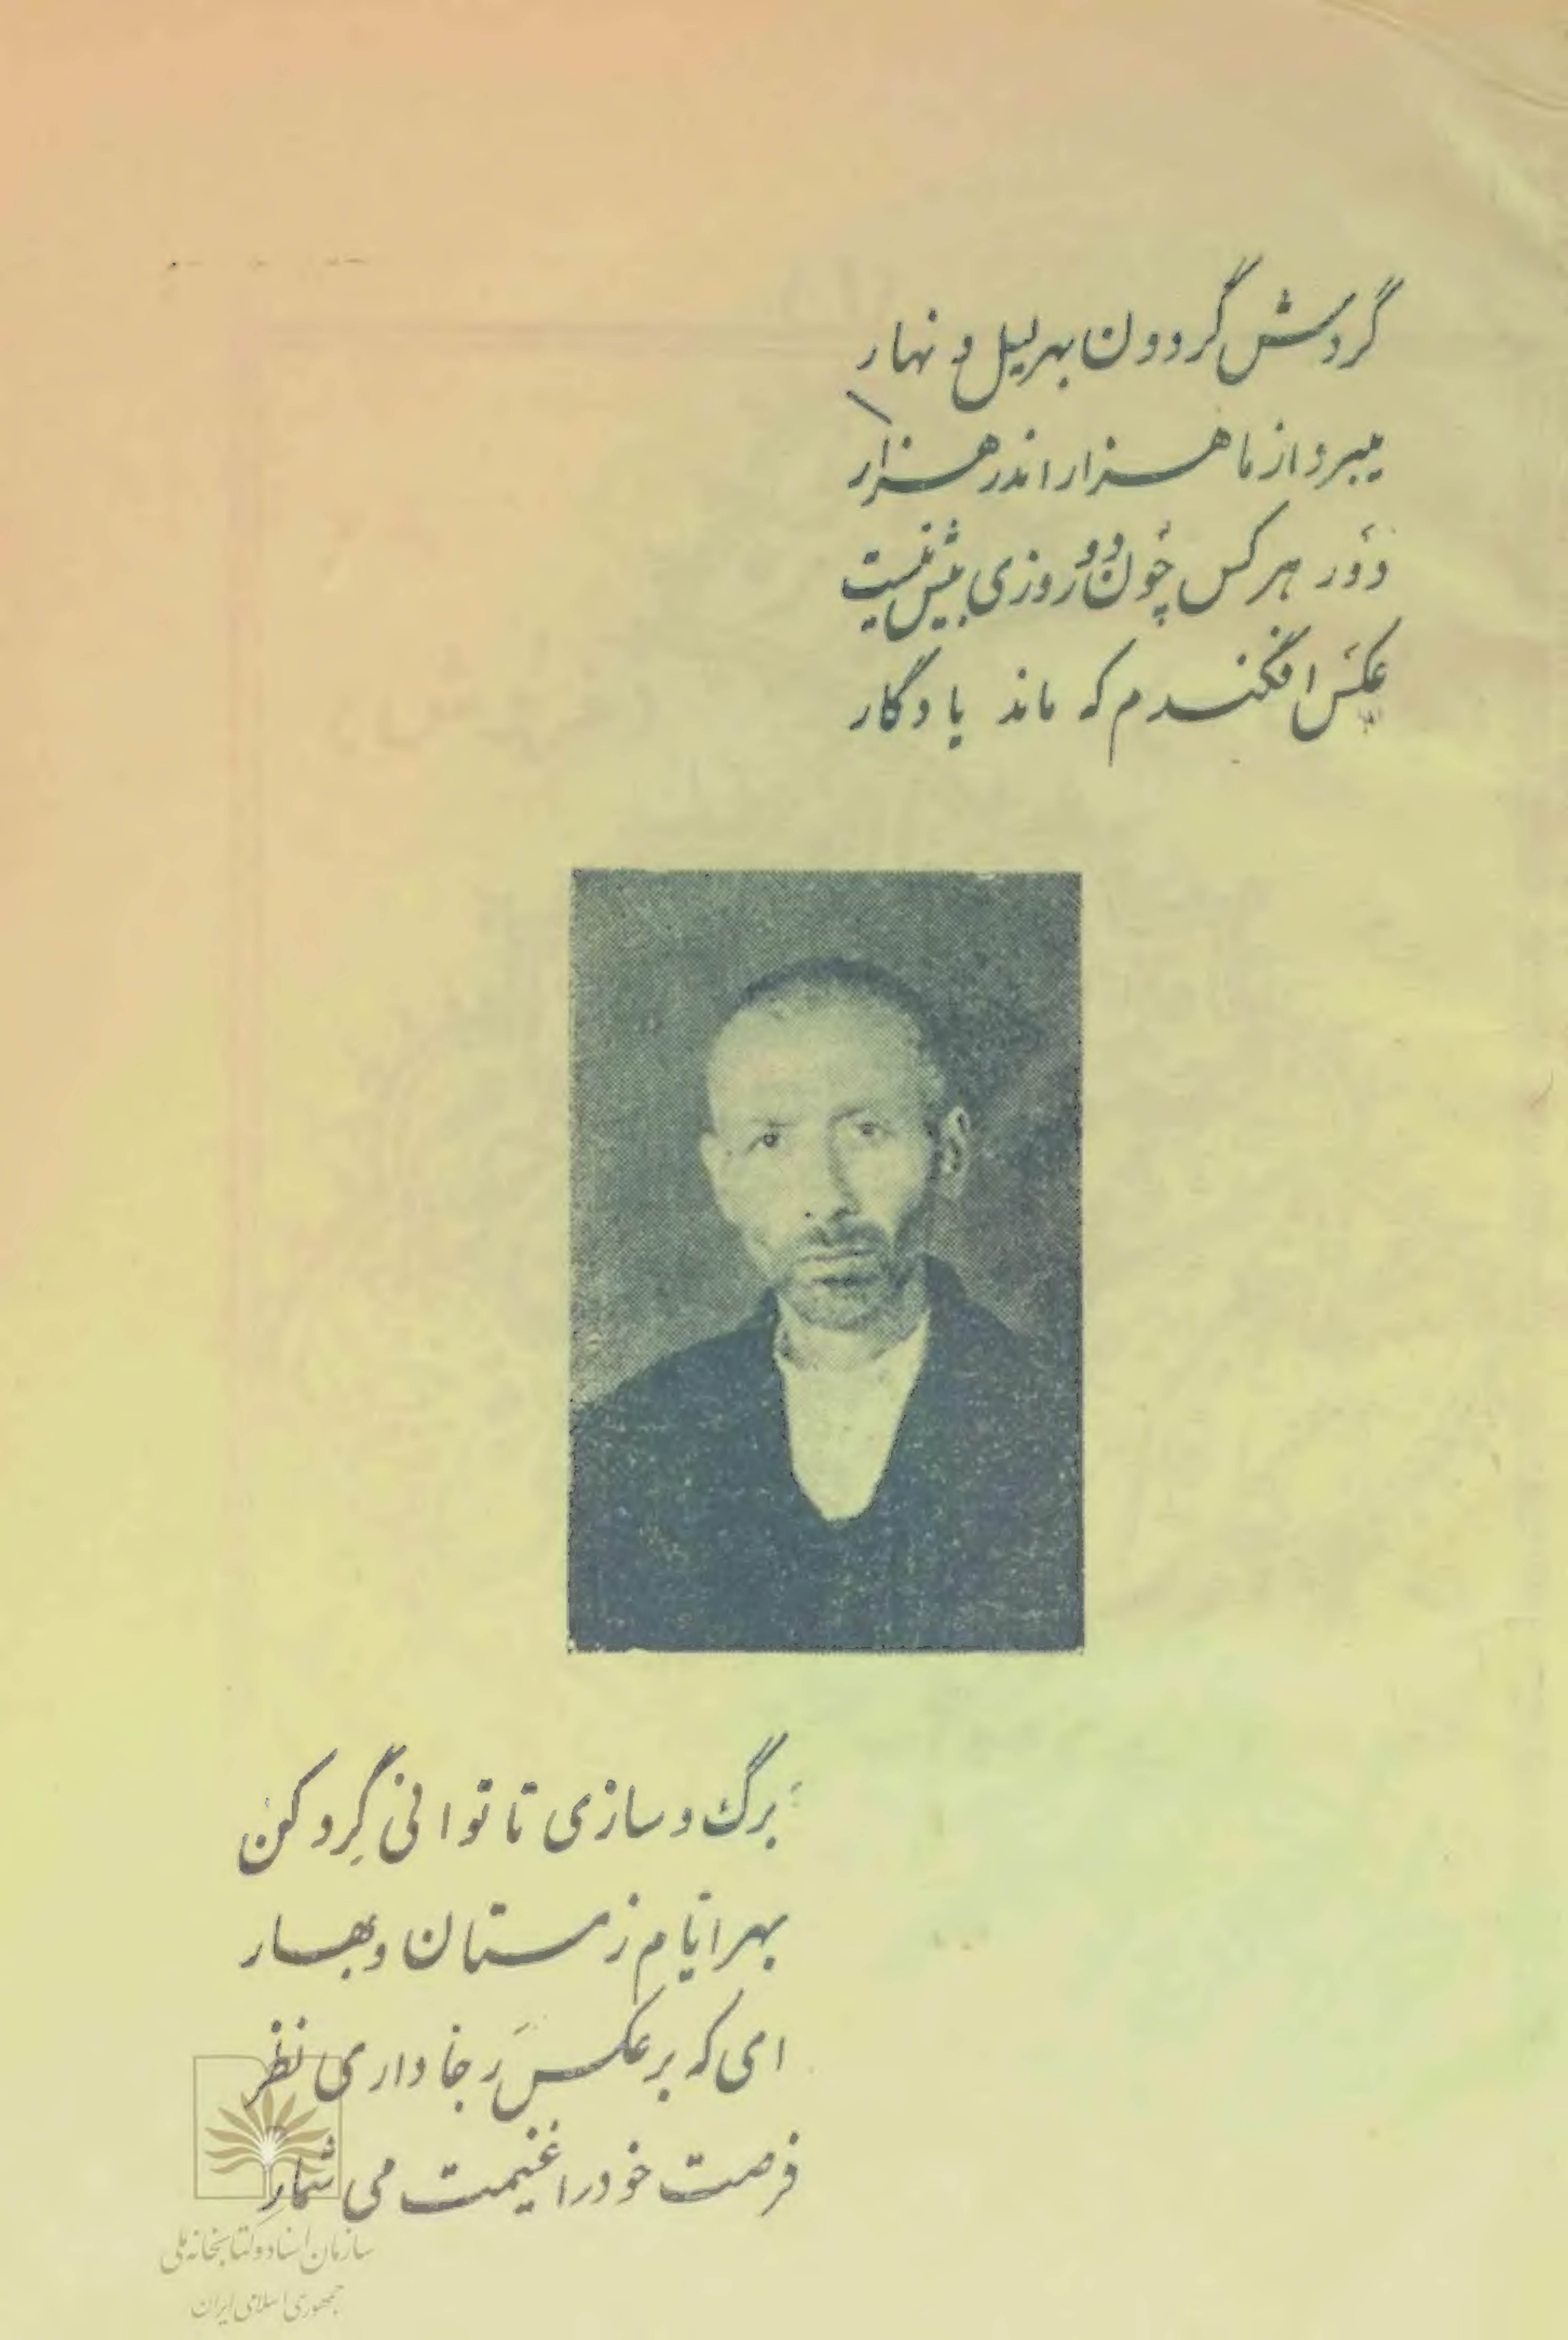 گردش گردون بهر لیل و نهار
میبرد از ما هزار اندر هزار
دَور هر کس چون دو روزی بیش نیست
عکس افکندم که ماند یادگار
برگ و سازی تا توانی گِرد کن
بهر ایّام زمستان و بهار
ای که بر عکس رجا داری نظر
فرصت خود را غنیمت می شمار
سازمان اسناد و کتابخانه ملی
جمهوری اسلامی ایران